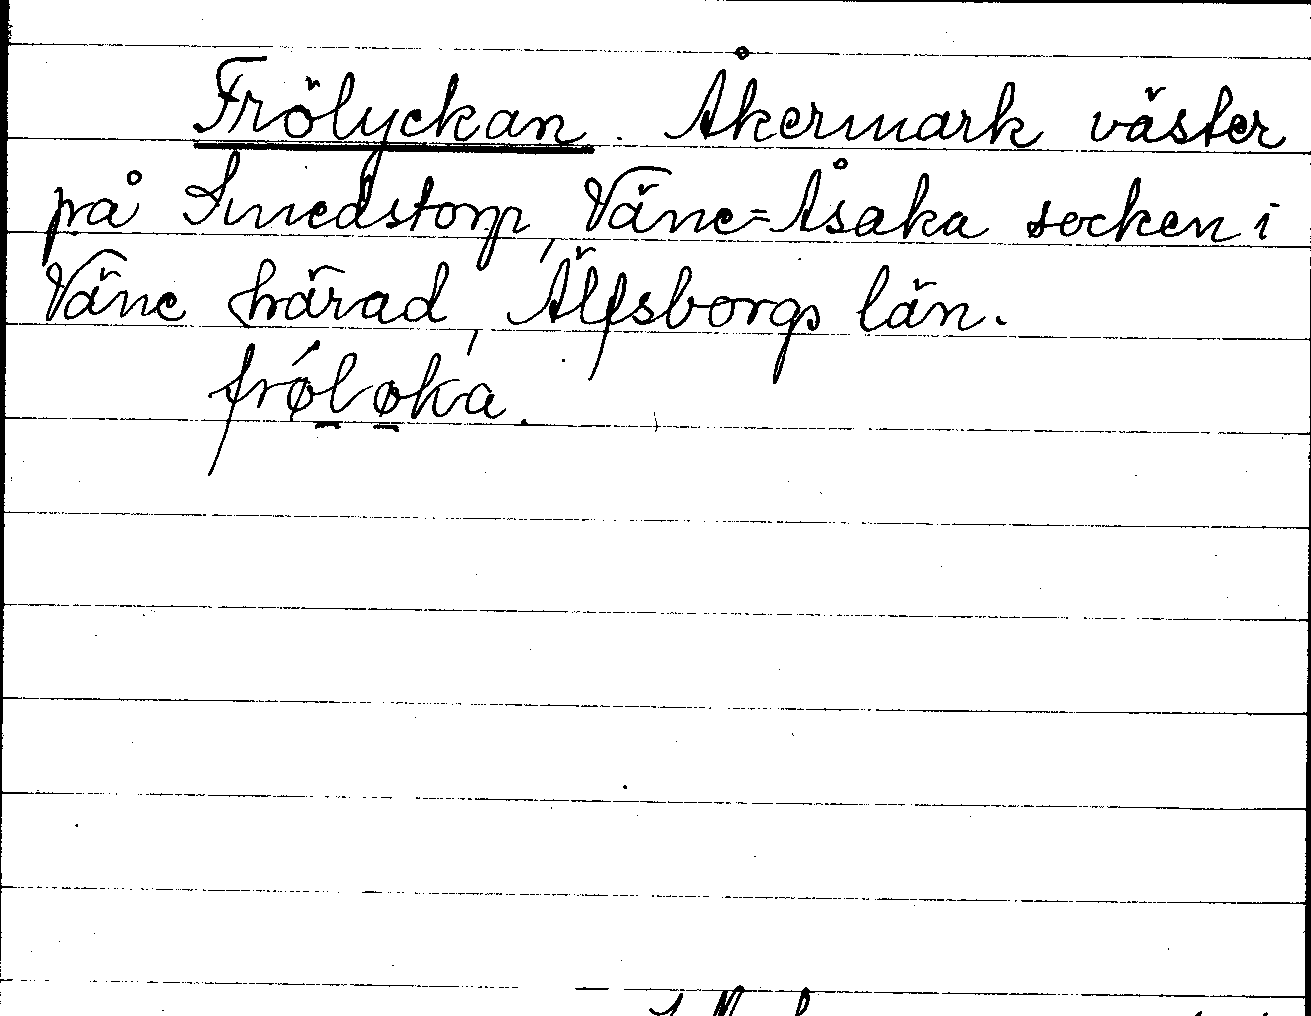 Frölyckan. Åkermark väster
på Smedstorp, Väne=Åsaka socken i
Väne härad, Älfsborgs län.
frǿløka.